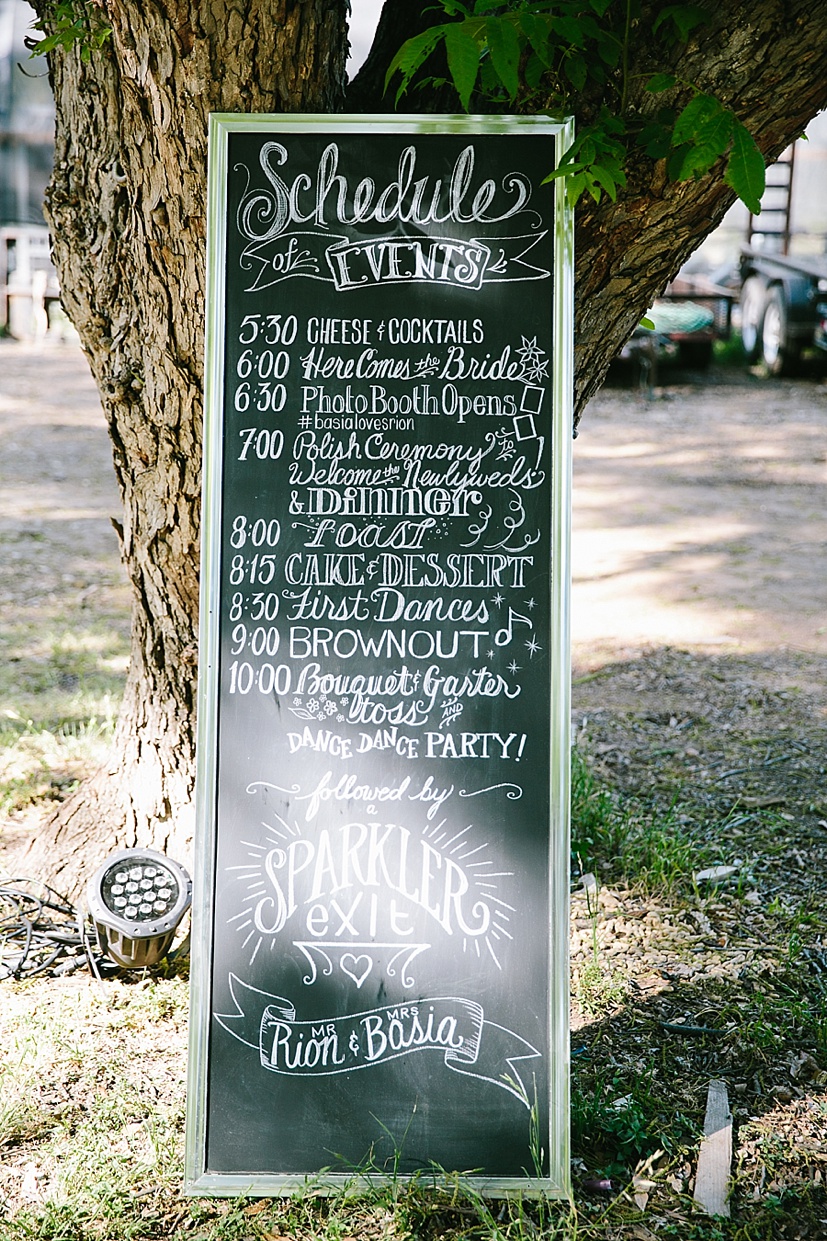 Schedule
of EVENTS
5:30 CHEESE & COCKTAILS
6:00 Here Comes the Bride
6:30 Photo Booth Opens
#basialovesrion
7:00 Polish Ceremony to
Welcome the Newlyweds
& Dinner
8:00 Toast
8:15 CAKE & DESSERT
8:30 First Dances
9:00 BROWNOUT
10:00 Bouquet & Garter
toss AND
DANCE DANCE PARTY!
followed by
a
SPARKLER
exit
MR MRS
Rion & Basia